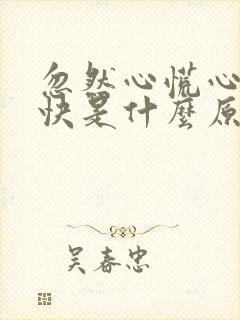 忽然心慌心
快是什麼原
吴春忠